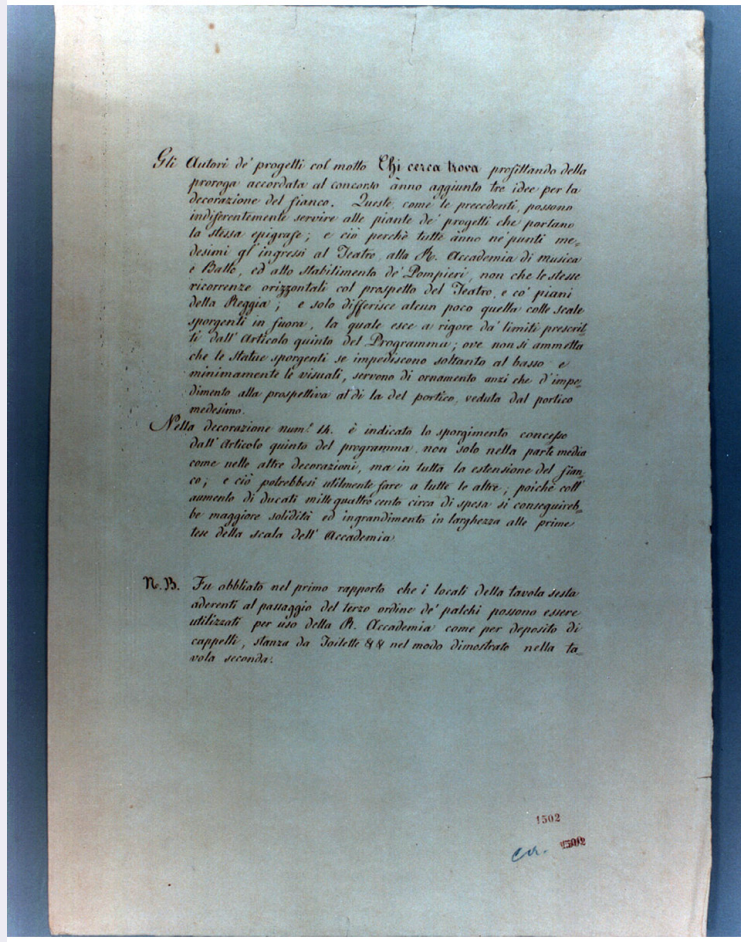 Gli Autori de' progetti col motto Chi cerca trova profittando della
proroga accordata al concorso ànno aggiunto tre idee per la
decorazione del fianco. Queste come le precedenti, possono
indiferentemente servire alle piante de' progetti che portano
la stessa epigrafe; e ciò perchè tutte ànno ne' punti me-
desimi gl'ingressi al Teatro, alla R. Accademia di musica
e Ballo, ed allo stabilimento de' Pompieri, non che le stesse
ricorrenze orizzontali col prospetto del Teatro, e co' piani
della Reggia; e solo differisce alcun poco quella colle scale
sporgenti in fuora, la quale esce a rigore da' limiti prescrit-
ti dall'Articolo quinto del Programma; ove non si ammetta
che le statue sporgenti se impediscono soltanto al basso e
minimamente le visuali, servono di ornamento anzi che d'impe-
dimento alla prospettiva al di là del portico, veduta dal portico
medesimo.
Nella decorazione num.º 14. è indicato lo sporgimento concesso
dall'Articolo quinto del programma, non solo nella parte media
come nelle altre decorazioni, ma in tutta la estensione del fian-
co; e ciò potrebbesi utilmente fare a tutte le altre, poichè coll'
aumento di ducati mille quattro cento circa di spesa si conseguireb-
be maggiore solidità ed ingrandimento in larghezza alle prime
tese della scala dell'Accademia.
N.B. Fu obbliato nel primo rapporto che i locali della tavola sesta
aderenti al passaggio del terzo ordine de' palchi possono essere
utilizzati per uso della R. Accademia come per deposito di
cappelli, stanza da Toilette && nel modo dimostrato nella ta-
vola seconda.
1502
1502